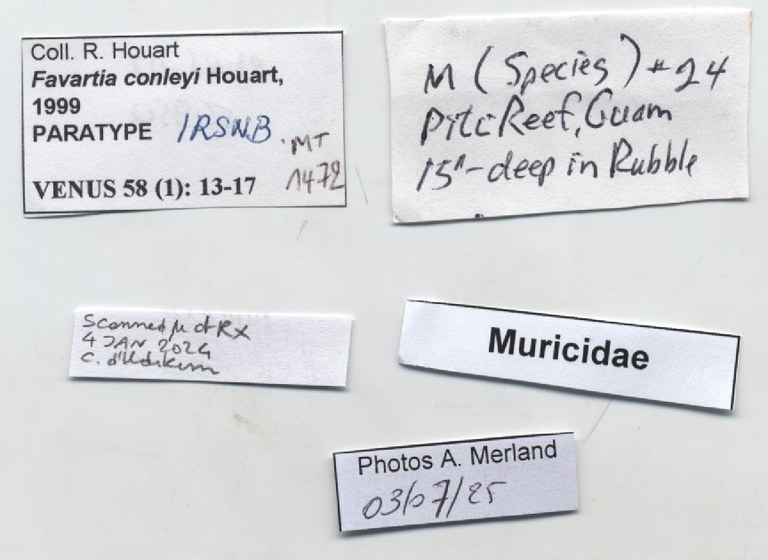 Coll. R. Houart
Favartia conleyi Houart,
1999
PARATYPE IRSNB. MT
VENUS 58 (1): 13-17 1472
M (Species) #24
Piti Reef, Guam
15'-deep in Rubble
Scanned µct RX
4 JAN 2024
C. d'Udekem
Muricidae
Photos A. Merland
03/07/25